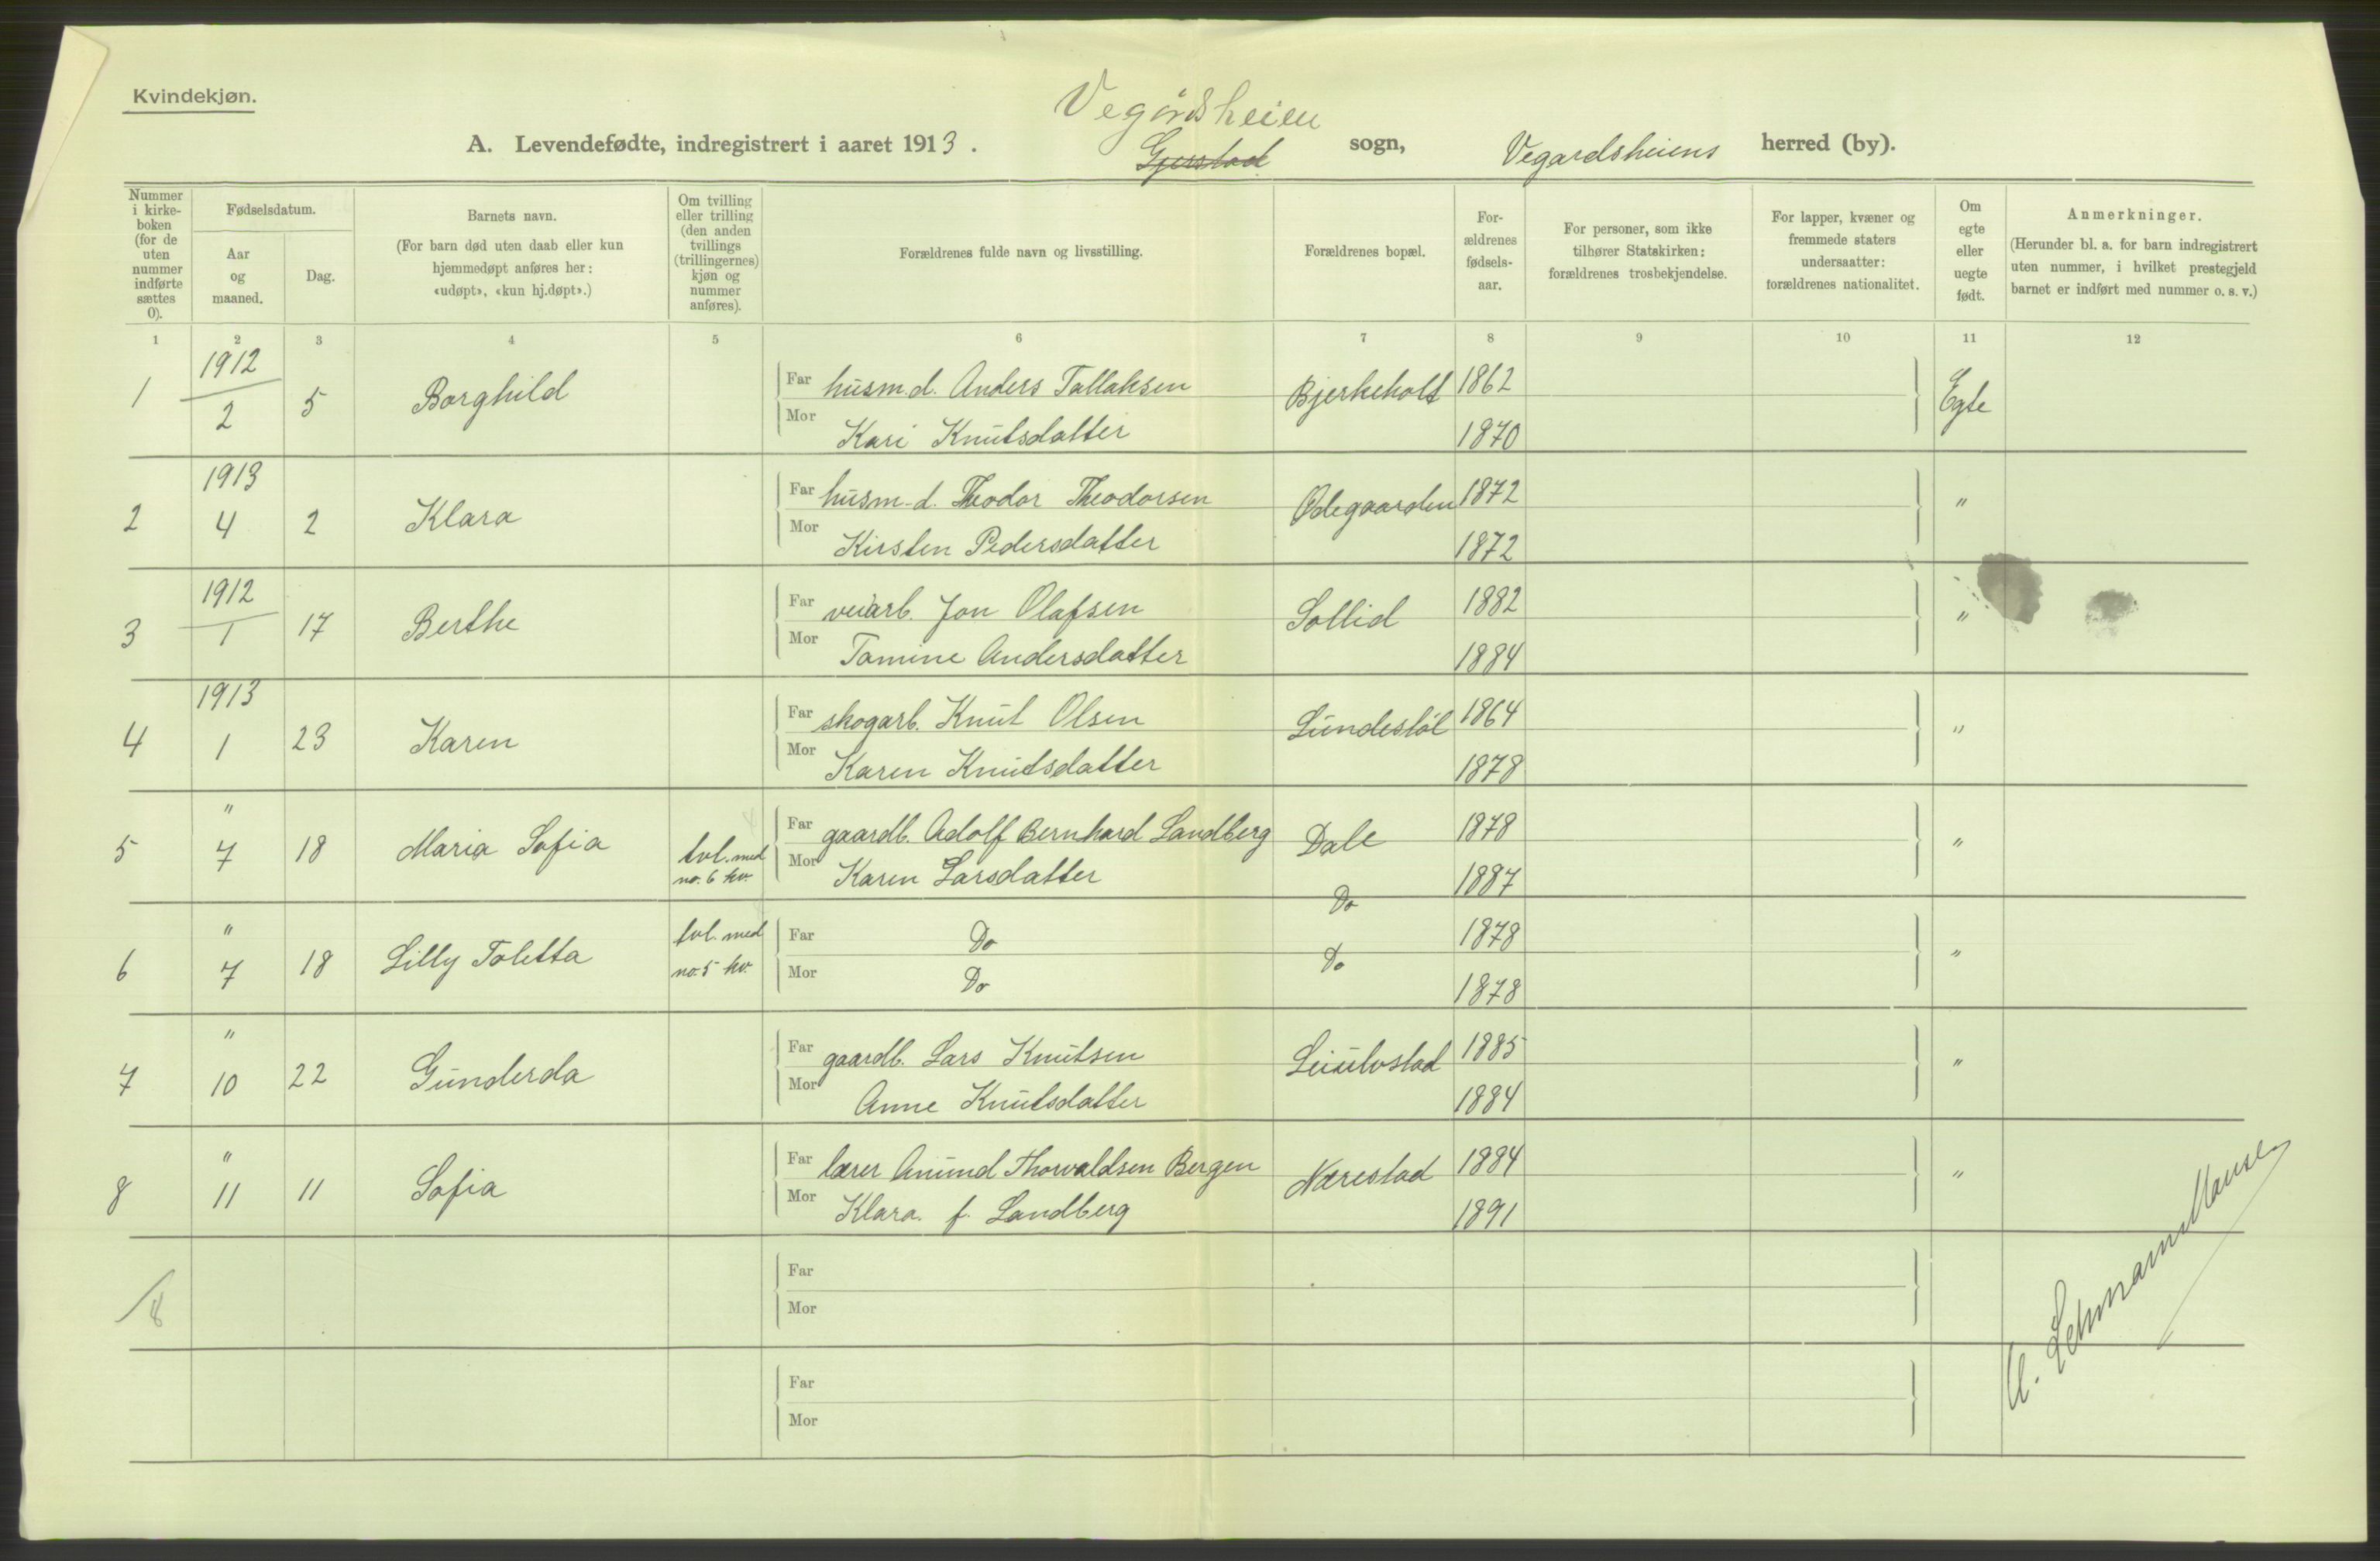 Kvindekjøn.
Vegårdsheien
A. Levendefødte, indregistrert i aaret 1913. Gjerstad sogn, Vegardsheiens herred (by).
Nummer i kirkeboken (for de uten nummer indførte sættes 0).
Fødselsdatum.
Aar og maaned.
Dag.
Barnets navn.
(For barn død uten daab eller kun hjemmedøpt anføres her: «udøpt», «kun hj.døpt».)
Om tvilling eller trilling (den anden tvillings (trillingernes) kjøn og nummer anføres).
Forældrenes fulde navn og livsstilling.
Forældrenes bopæl.
Forældrenes fødselsaar.
For personer, som ikke tilhører Statskirken: forældrenes trosbekjendelse.
For lapper, kvæner og fremmede staters undersaatter: forældrenes nationalitet.
Om egte eller uegte født.
Anmerkninger.
(Herunder bl. a. for barn indregistrert uten nummer, i hvilket prestegjeld barnet er indført med nummer o. s. v.)
1 2 3 4 5 6 7 8 9 10 11 12
1 1912 2 5 Borghild Far husm.d. Anders Tallaksen Bjerkeholt 1862 Egte
Mor Kari Knutsdatter 1870
2 1913 4 2 Klara Far husm.d. Theodor Theodorsen Ødegaarden 1872 "
Mor Kirsten Pedersdatter 1872
3 1912 1 17 Berthe Far veiarb. Jon Olafsen Sollid 1882 "
Mor Tomine Andersdatter 1884
4 1913 1 23 Karen Far skogarb. Knut Olsen Lundestöl 1864 "
Mor Karen Knutsdatter 1878
5 " 7 18 Maria Sofia tvl. med no. 6 kv. Far gaardb. Adolf Bernhard Landberg Dale 1878 "
Mor Karen Larsdatter Do 1887
6 " 7 18 Lilly Toletta tvl. med no. 5 kv. Far Do Do 1878 "
Mor Do 1878
7 " 10 22 Gunderda Far gaardb. Lars Knutsen Leiulvstad 1885 "
Mor Anne Knutsdatter 1884
8 " 11 11 Sofia Far lærer Anund Thorvaldsen Bergen Nærestad 1884 "
Mor Klara f. Landberg 1891
/8 Far
Mor
Far
Mor